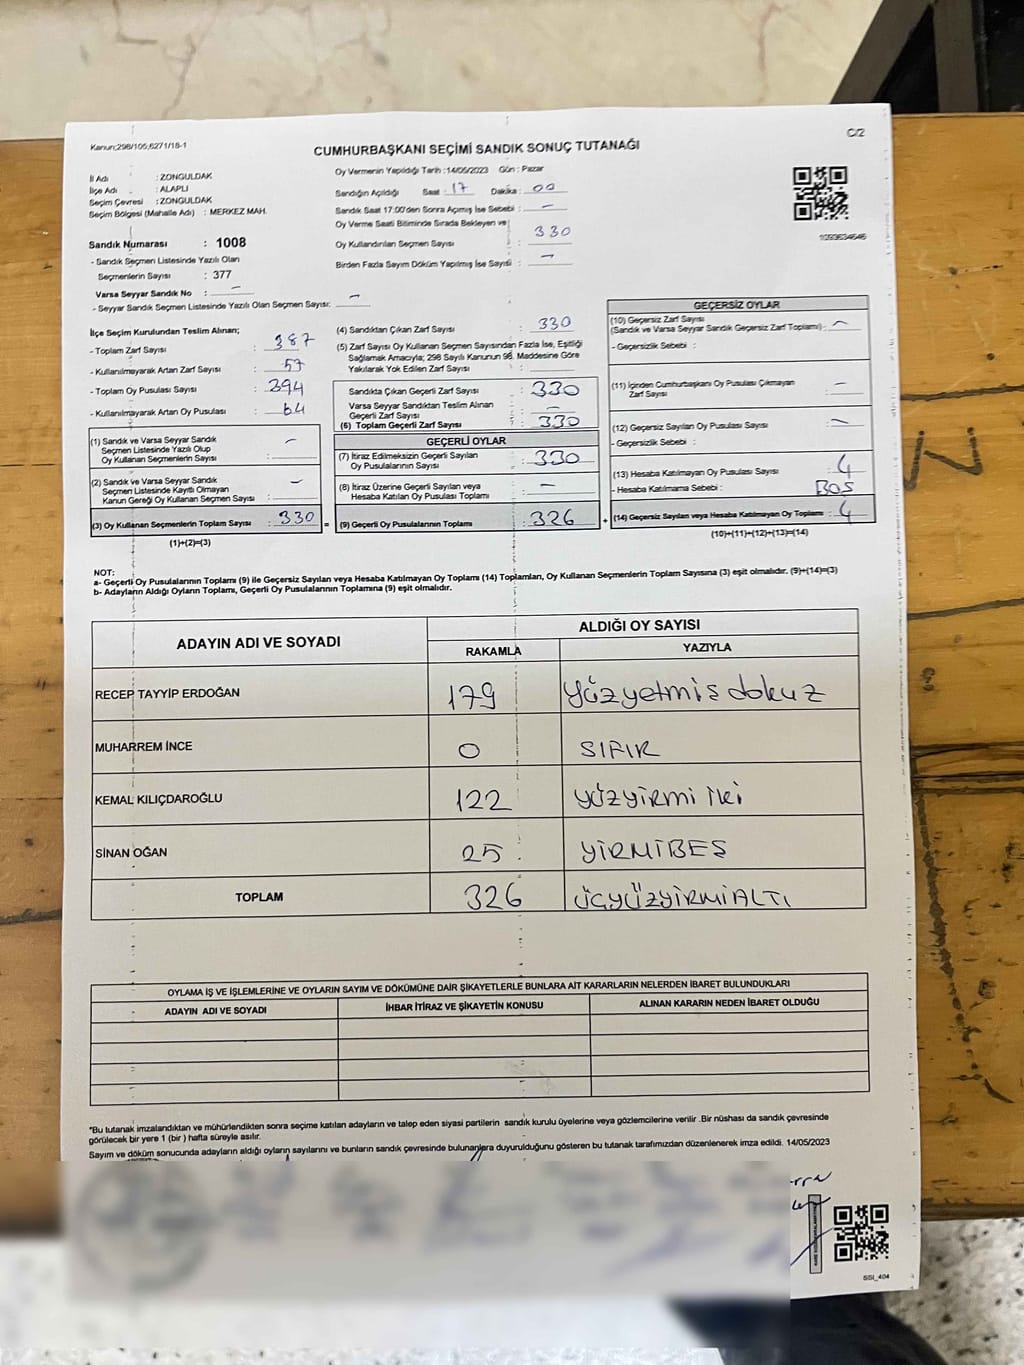 Kanun;298/105,6271/18-1
C/2
CUMHURBAŞKANI SEÇİMİ SANDIK SONUÇ TUTANAĞI
İl Adı : ZONGULDAK
İlçe Adı : ALAPLI
Seçim Çevresi : ZONGULDAK
Seçim Bölgesi (Mahalle Adı) : MERKEZ MAH.
Sandık Numarası : 1008
- Sandık Seçmen Listesinde Yazılı Olan
Seçmenlerin Sayısı : 377
Varsa Seyyar Sandık No : -
- Seyyar Sandık Seçmen Listesinde Yazılı Olan Seçmen Sayısı: -
Oy Vermenin Yapıldığı Tarih :14/05/2023 Gün : Pazar
Sandığın Açıldığı Saat : 17 Dakika : 00
Sandık Saat 17:00'den Sonra Açımış İse Sebebi : -
Oy Verme Saati Bitiminde Sırada Bekleyen ve
Oy Kullandırılan Seçmen Sayısı : 330
Birden Fazla Sayım Döküm Yapılmış İse Sayısı : -
1093634646
İlçe Seçim Kurulundan Teslim Alınan;
- Toplam Zarf Sayısı : 387
- Kullanılmayarak Artan Zarf Sayısı : 57
- Toplam Oy Pusulası Sayısı : 394
- Kullanılmayarak Artan Oy Pusulası : 64
(1) Sandık ve Varsa Seyyar Sandık
Seçmen Listesinde Yazılı Olup
Oy Kullanan Seçmenlerin Sayısı : -
(2) Sandık ve Varsa Seyyar Sandık
Seçmen Listesinde Kayıtlı Olmayan
Kanun Gereği Oy Kullanan Seçmen Sayısı : -
(3) Oy Kullanan Seçmenlerin Toplam Sayısı : 330 =
(1)+(2)=(3)
(4) Sandıktan Çıkan Zarf Sayısı : 330
(5) Zarf Sayısı Oy Kullanan Seçmen Sayısından Fazla İse, Eşitliği
Sağlamak Amacıyla; 298 Sayılı Kanunun 98. Maddesine Göre
Yakılarak Yok Edilen Zarf Sayısı :
Sandıkta Çıkan Geçerli Zarf Sayısı : 330
Varsa Seyyar Sandıktan Teslim Alınan
Geçerli Zarf Sayısı : -
(6) Toplam Geçerli Zarf Sayısı : 330
GEÇERLİ OYLAR
(7) İtiraz Edilmeksizin Geçerli Sayılan
Oy Pusulalarının Sayısı : 330
(8) İtiraz Üzerine Geçerli Sayılan veya
Hesaba Katılan Oy Pusulası Toplamı : -
(9) Geçerli Oy Pusulalarının Toplamı : 326 +
GEÇERSİZ OYLAR
(10) Geçersiz Zarf Sayısı
(Sandık ve Varsa Seyyar Sandık Geçersiz Zarf Toplamı) : -
- Geçersizlik Sebebi :
(11) İçinden Cumhurbaşkanı Oy Pusulası Çıkmayan
Zarf Sayısı : -
(12) Geçersiz Sayılan Oy Pusulası Sayısı : -
- Geçersizlik Sebebi :
(13) Hesaba Katılmayan Oy Pusulası Sayısı : 4
- Hesaba Katılmama Sebebi : BOŞ
(14) Geçersiz Sayılan veya Hesaba Katılmayan Oy Toplamı : 4
(10)+(11)+(12)+(13)=(14)
NOT:
a- Geçerli Oy Pusulalarının Toplamı (9) ile Geçersiz Sayılan veya Hesaba Katılmayan Oy Toplamı (14) Toplamları, Oy Kullanan Seçmenlerin Toplam Sayısına (3) eşit olmalıdır. (9)+(14)=(3)
b- Adayların Aldığı Oyların Toplamı, Geçerli Oy Pusulalarının Toplamına (9) eşit olmalıdır.
ADAYIN ADI VE SOYADI
ALDIĞI OY SAYISI
RAKAMLA YAZIYLA
RECEP TAYYİP ERDOĞAN 179 yüzyetmiş dokuz
MUHARREM İNCE 0 SIFIR
KEMAL KILIÇDAROĞLU 122 yüzyirmi iki
SİNAN OĞAN 25 YİRMİBEŞ
TOPLAM 326 ÜÇYÜZYİRMİALTI
OYLAMA İŞ VE İŞLEMLERİNE VE OYLARIN SAYIM VE DÖKÜMÜNE DAİR ŞİKAYETLERLE BUNLARA AİT KARARLARIN NELERDEN İBARET BULUNDUKLARI
ADAYIN ADI VE SOYADI İHBAR İTİRAZ VE ŞİKAYETİN KONUSU ALINAN KARARIN NEDEN İBARET OLDUĞU
*Bu tutanak imzalandıktan ve mühürlendikten sonra seçime katılan adayların ve talep eden siyasi partilerin sandık kurulu üyelerine veya gözlemcilerine verilir .Bir nüshası da sandık çevresinde
görülecek bir yere 1 (bir ) hafta süreyle asılır.
Sayım ve döküm sonucunda adayların aldığı oyların sayılarını ve bunların sandık çevresinde bulunanlara duyurulduğunu gösteren bu tutanak tarafımızdan düzenlenerek imza edildi. 14/05/2023
SSI_404